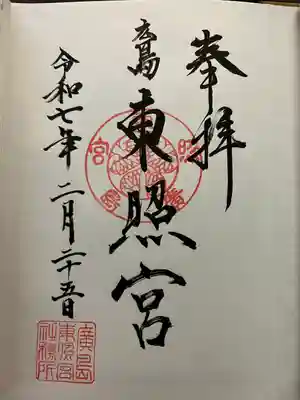 奉拝
廣島
東照宮
令和七年二月二十五日
廣島
東照宮
社務所